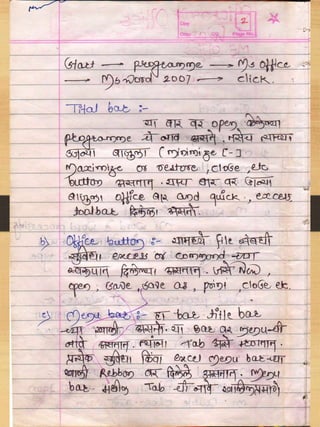 2
Start → programme → Ms office
→ Ms word 2007 → click.
Tital bar :-
या बार वर open केलेल्या
programme चे नाव असते. तसेच त्याच्या
उजव्या बाजुला (minimize (-)
Maximize or restore, close, etc
button असतात. याच बार वर डाव्या
बाजुला office बार and quick, excess
toolbar दिलेला असतो.
b) Office button :- यामध्ये file संबधी
सुविधा excess or command च्या
स्वरूपात दिलेल्या असतात. जसे New,
open, save, save as, print, close etc.
c) Menu bar :- हा bar title bar
च्या खाली असतो. या bar वर menu ची
नावे असतात. त्यांना Tab असे म्हणतात.
प्रत्येक सुविधा किंवा excel menu bar च्या
खाली Rebbon वर दिलेले असतात. Menu
bar मधील Tab ची नावे खालीलप्रमाणे